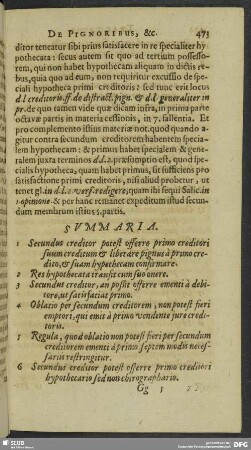 DE PIGNORIBUS, &c. 473
ditor teneatur sibi prius satisfacere in re specialiter hy-
pothecata: secus autem sit quo ad tertium possesso-
rem, qui non habet hypothecam aliquam in dictis re-
bus, quia quo ad eum, non requiritur excussio de speci-
ali hypotheca primi creditoris: sed nunc erit locus
d.l. creditoris. ff. de distract. pign. & d.l. generaliter in
pr. de quo tamen vide quæ dicam infra, in prima parte
octavæ partis in materia cessionis, in 7. fallentia. Et
pro complemento istius materiæ not. quod quando a-
gitur contra secundum creditorem habentem specia-
lem hypothecam: & primus habet specialem & gene-
ralem juxta terminos d.l. 2. præsumptio est, quod spe-
cialis hypotheca, quam habet primus, sit sufficiens pro
satisfactione primi creditoris, nisi aliud probetur, ut
tenet gl. in d.l. 2. vers. redigere, quam ibi sequi Salic. in
1. opinione. & per hanc remanet expeditum istud secun-
dum membrum istius 5. partis.
SUMMARIA.
1 Secundus creditor potest offerre primo creditori
suum creditum & liberare pignus à primo cre-
dito, & suam hypothecam confirmare.
2 Res hypothecata transit cum suo onere.
3 Secundus creditor, an possit offerre ementi à debi-
tore, ut satisfaciat primo.
4 Oblatio per secundum creditorem, non potest fieri
emptori, qui emit à primo vendente jure credi-
toris.
5 Regula, quod oblatio non potest fieri per secundum
creditorem ementi à primo septem modis neces-
sariis restringitur.
6 Secundus creditor potest offerre primo creditori
hypothecario sed non chirographario.
Gg
SLUB
DFG